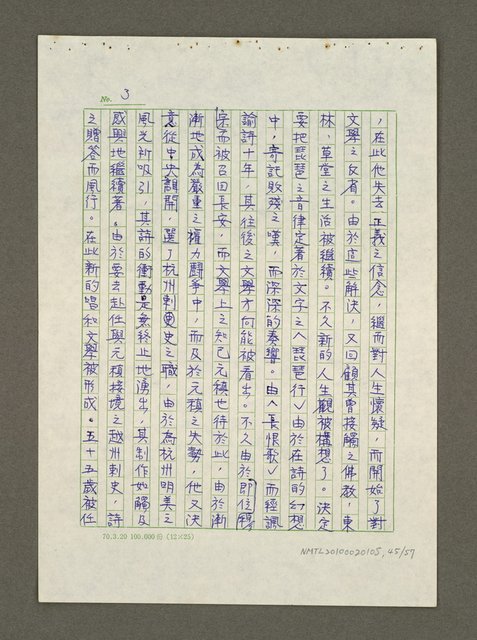 No. 3
，在此他失去正義之信念，繼而對人生懷疑，而開始了對
文學之反省。由於這些解決，又回顧其曾接觸之佛教，東
林、草堂之生活被繼續。不久新的人生觀被構想了。決定
要把琵琶之音律定著於文字之〈琵琶行〉由於在詩的幻想
中，寄託敗殘之嘆，而深深的奏響。由〈長恨歌〉而經諷
諭詩十年，其往後之文學方向能被看出。不久由於即位穆
宗而被召回長安，而文學上之知己元稹也待於此，由於漸
漸地成為嚴重之權力鬪爭中，而及於元稹之失勢，他又決
意從中央離開，選了杭州刺史之職，由於為杭州明美之
風光所吸引，其詩的衝動是無終止地湧出，其制作如觸及
感興地繼續著。由於要去赴任與元稹接境之越州刺史，詩
之贈答而風行。在此新的唱和文學被形成。五十五歲被任
70.3.20 100,000份 (12×25)
NMTL20100020105, 45/57